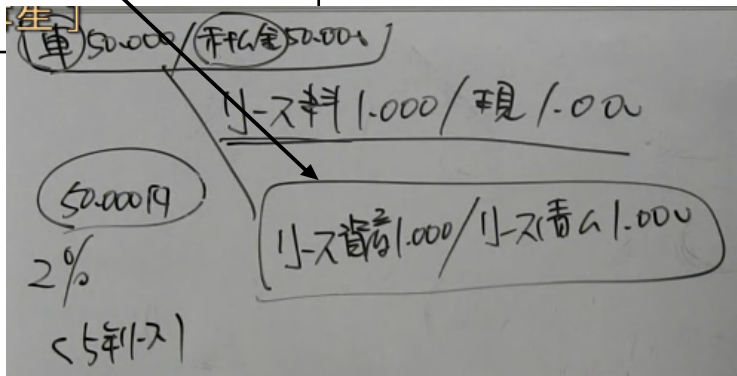 車 50.000 / 未払金 50.000
リース料 1.000 / 現 1.000
50.000円
2%
リース資産 1.000 / リース債ム 1.000
<5年リース)